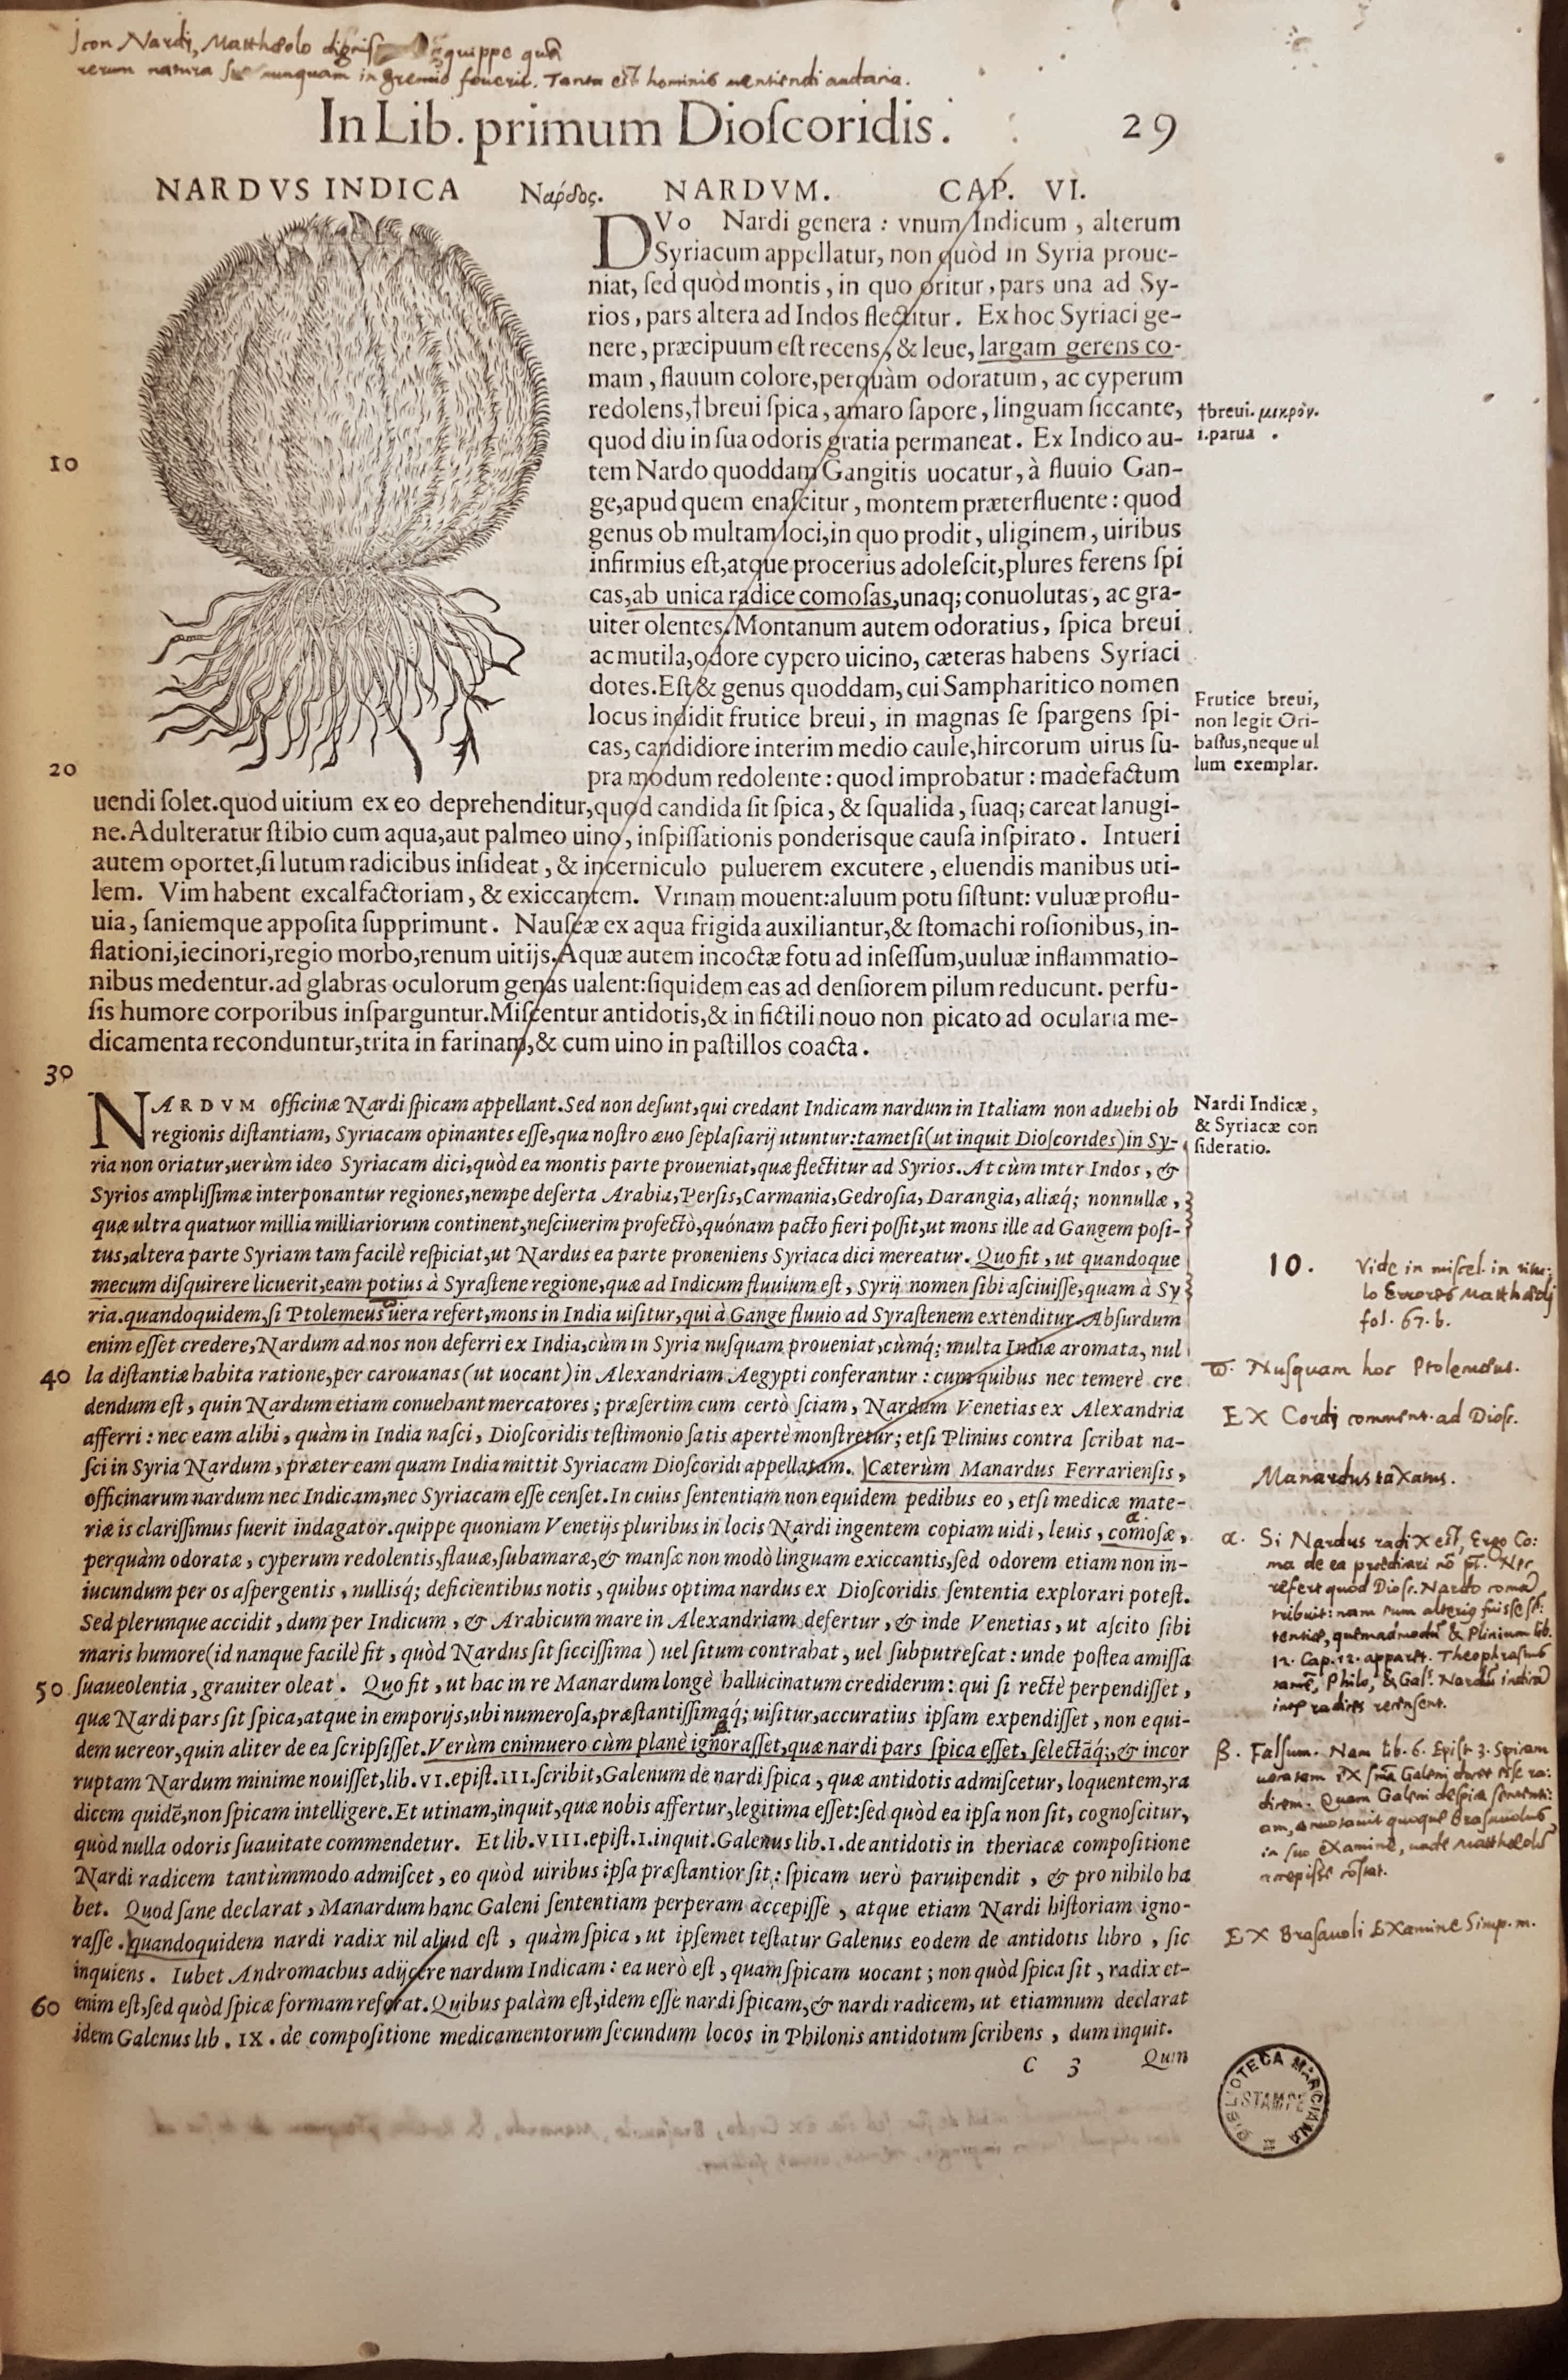 Icon Nardi, Matthæolo quippe quā
rerum natura nunquam in gremio fouerit. Tanta est hominis mentiendi audacia.
In Lib. primum Dioſcoridis. 29
NARDVS INDICA
Νάρδος. NARDVM. CAP. VI.
DVo Nardi genera : vnum Indicum , alterum
Syriacum appellatur, non quòd in Syria proue-
niat, ſed quòd montis , in quo oritur , pars una ad Sy-
rios , pars altera ad Indos flectitur . Ex hoc Syriaci ge-
nere , præcipuum eſt recens , & leue, largam gerens co-
mam , flauum colore,perquàm odoratum , ac cyperum
redolens,†breui ſpica , amaro ſapore , linguam ſiccante,
quod diu in ſua odoris gratia permaneat . Ex Indico au-
10
tem Nardo quoddam Gangitis uocatur , à fluuio Gan-
ge,apud quem enaſcitur , montem præterfluente : quod
genus ob multam loci,in quo prodit , uliginem , uiribus
infirmius eſt,atque procerius adoleſcit,plures ferens ſpi
cas,ab unica radice comoſas,unaq; conuolutas , ac gra-
uiter olentes. Montanum autem odoratius , ſpica breui
ac mutila,odore cypero uicino, cæteras habens Syriaci
dotes.Eſt & genus quoddam, cui Sampharitico nomen
locus indidit frutice breui , in magnas ſe ſpargens ſpi-
cas, candidiore interim medio caule,hircorum uirus ſu-
20
pra modum redolente : quod improbatur : madefactum
uendi ſolet.quod uitium ex eo deprehenditur,quod candida ſit ſpica , & ſqualida , ſuaq; careat lanugi-
ne. Adulteratur ſtibio cum aqua,aut palmeo uino , inſpiſſationis ponderisque cauſa inſpirato . Intueri
autem oportet,ſi lutum radicibus inſideat , & incerniculo puluerem excutere , eluendis manibus uti-
lem. Vim habent excalfactoriam , & exiccantem. Vrinam mouent:aluum potu ſiſtunt: vuluæ proflu-
uia , ſaniemque appoſita ſupprimunt . Nauſeæ ex aqua frigida auxiliantur,& ſtomachi roſionibus, in-
flationi,iecinori,regio morbo,renum uitijs. Aquæ autem incoctæ fotu ad inſeſſum,uuluæ inflammatio-
nibus medentur.ad glabras oculorum genas ualent:ſiquidem eas ad denſiorem pilum reducunt. perfu-
ſis humore corporibus inſparguntur.Miſcentur antidotis,& in fictili nouo non picato ad ocularia me-
dicamenta reconduntur,trita in farinam,& cum uino in paſtillos coacta .
30
†breui. μικρὸν.
i.parua .
Frutice breui,
non legit Ori-
baſius,neque ul
lum exemplar.
NARDVM officinæ Nardi ſpicam appellant.Sed non deſunt,qui credant Indicam nardum in Italiam non aduehi ob
regionis diſtantiam, Syriacam opinantes eſſe,qua noſtro æuo ſeplaſiarij utuntur:tametſi (ut inquit Dioſcorides) in Sy-
ria non oriatur,uerùm ideo Syriacam dici,quòd ea montis parte proueniat,quæ flectitur ad Syrios. At cùm inter Indos , &
Syrios ampliſſimæ interponantur regiones,nempe deſerta Arabia,Perſis,Carmania,Gedroſia, Darangia, aliæq́; nonnullæ ,
quæ ultra quatuor millia milliariorum continent,neſciuerim profectò,quónam pacto fieri poſſit,ut mons ille ad Gangem poſi-
tus,altera parte Syriam tam facilè reſpiciat,ut Nardus ea parte proueniens Syriaca dici mereatur. Quo fit , ut quandoque
mecum diſquirere licuerit,eam potius à Syraſtene regione,quæ ad Indicum fluuium eſt , Syrij nomen ſibi aſciuiſſe,quam à Sy
ria.quandoquidem,ſi Ptolemeus uera refert,mons in India uiſitur,qui à Gange fluuio ad Syraſtenem extenditur. Abſurdum
enim eſſet credere,Nardum ad nos non deferri ex India,cùm in Syria nuſquam proueniat,cùmq́; multa Indiæ aromata, nul
40
la diſtantiæ habita ratione,per carouanas (ut uocant) in Alexandriam Aegypti conferantur : cum quibus nec temerè cre
dendum eſt , quin Nardum etiam conuehant mercatores ; præſertim cum certò ſciam , Nardum Venetias ex Alexandria
afferri : nec eam alibi , quàm in India naſci , Dioſcoridis teſtimonio ſatis apertè monſtretur; etſi Plinius contra ſcribat na-
ſci in Syria Nardum , præter eam quam India mittit Syriacam Dioſcoridi appellatam. Cæterùm Manardus Ferrarienſis ,
officinarum nardum nec Indicam,nec Syriacam eſſe cenſet.In cuius ſententiam non equidem pedibus eo , etſi medicæ mate-
riæ is clariſſimus fuerit indagator.quippe quoniam Venetijs pluribus in locis Nardi ingentem copiam uidi , leuis , comoſæ ,
perquàm odoratæ , cyperum redolentis,flauæ,ſubamaræ,& manſæ non modò linguam exiccantis,ſed odorem etiam non in-
iucundum per os aſpergentis , nullisq́; deficientibus notis , quibus optima nardus ex Dioſcoridis ſententia explorari poteſt.
Sed plerunque accidit , dum per Indicum , & Arabicum mare in Alexandriam defertur , & inde Venetias , ut aſcito ſibi
maris humore (id nanque facilè fit , quòd Nardus ſit ſicciſſima) uel ſitum contrahat , uel ſubputreſcat : unde poſtea amiſſa
50
ſuaueolentia , grauiter oleat . Quo fit , ut hac in re Manardum longè hallucinatum crediderim : qui ſi rectè perpendiſſet ,
quæ Nardi pars ſit ſpica,atque in emporijs,ubi numeroſa,præſtantiſſimaq́; uiſitur,accuratius ipſam expendiſſet , non equi-
dem uereor,quin aliter de ea ſcripſiſſet.Verùm enimuero cùm planè ignoraſſet,quæ nardi pars ſpica eſſet, ſelectāq́;,& incor
ruptam Nardum minime nouiſſet,lib.VI.epiſt.III.ſcribit,Galenum de nardi ſpica , quæ antidotis admiſcetur, loquentem,ra
dicem quidē,non ſpicam intelligere.Et utinam,inquit,quæ nobis affertur,legitima eſſet:ſed quòd ea ipſa non ſit, cognoſcitur,
quòd nulla odoris ſuauitate commendetur. Et lib.VIII.epiſt.I.inquit.Galenus lib.I.de antidotis in theriacæ compoſitione
Nardi radicem tantùmmodo admiſcet, eo quòd uiribus ipſa præſtantior ſit : ſpicam uerò paruipendit , & pro nihilo ha
bet. Quod ſane declarat , Manardum hanc Galeni ſententiam perperam accepiſſe , atque etiam Nardi hiſtoriam igno-
raſſe . quandoquidem nardi radix nil aliud eſt , quàm ſpica , ut ipſemet teſtatur Galenus eodem de antidotis libro , ſic
inquiens . Iubet Andromachus adijcere nardum Indicam : ea uerò eſt , quam ſpicam uocant ; non quòd ſpica ſit , radix et-
60
enim eſt,ſed quòd ſpicæ formam referat.Quibus palàm eſt,idem eſſe nardi ſpicam,& nardi radicem, ut etiamnum declarat
idem Galenus lib . IX . de compoſitione medicamentorum ſecundum locos in Philonis antidotum ſcribens , dum inquit.
C 3 Qum
Nardi Indicæ ,
& Syriacæ con
ſideratio.
10. Vide in miſcel. in
lo Errores Matthæolj
fol. 67. b.
Nuſquam hoc Ptolemæus.
EX Cordj comment. ad Dioſc.
Manardus taxatus.
α. Si Nardus radix est, Ergo Co:
ma de ea prædicari nō pt. Nec
refert quod Dioſc. Nardo comā
tribuit: nam cum alterius fuisse
tentiæ, quemadmodū & Plinium lib.
12. Cap. 12. apparet. Theophrastus
Philo, & Gals. Nardū indicā
inter radices recensent.
β. Falsum. Nam lib. 6. Epist. 3. Spicam
Galeni esse ra:
dicem. Quam Galeni de spica sententi:
am, quoque Brasauolus
in suo examine, unde Matthæolū
EX Braſauoli EXamine Simp. m.
BIBLIOTECA MARCIANA
STAMPE